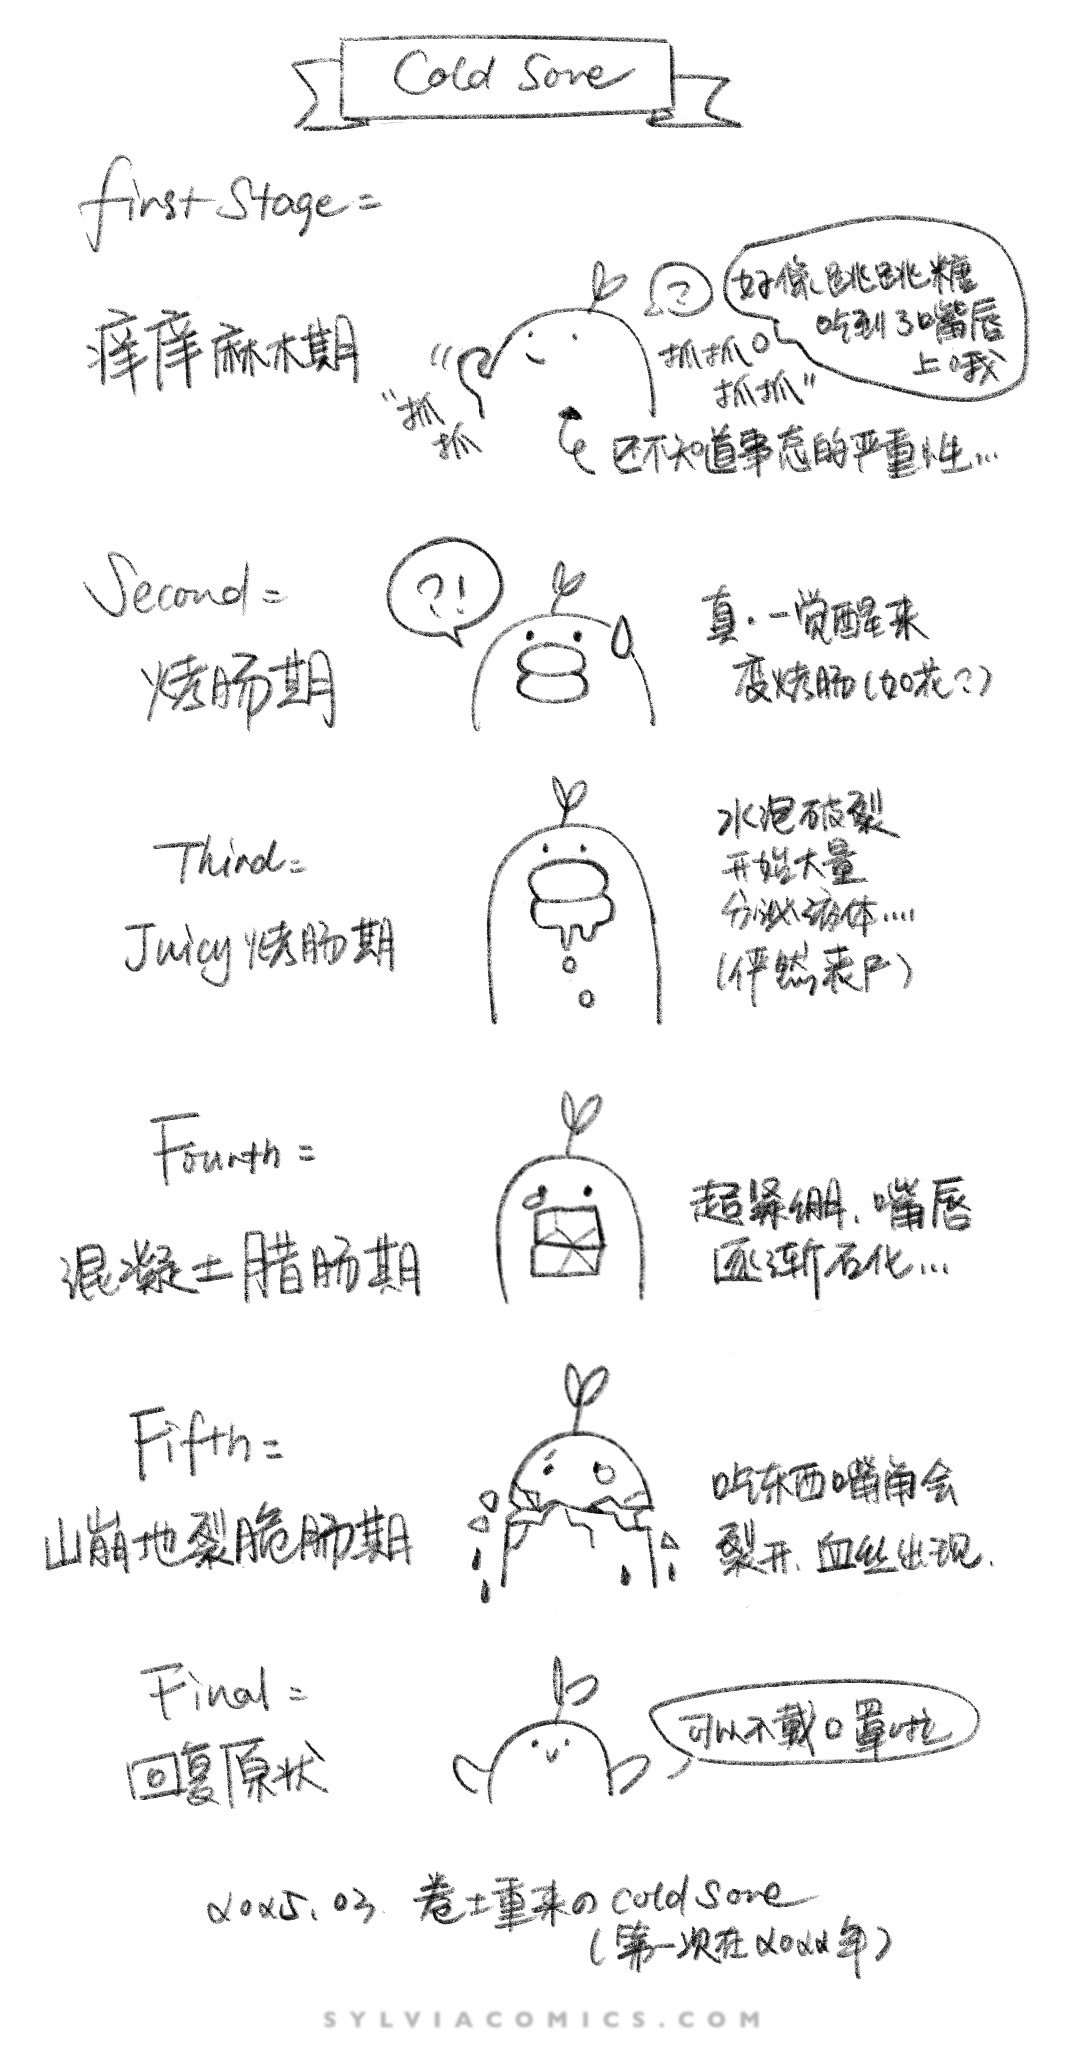 Cold Sore
first Stage=
痒痒麻木期
"抓
抓
?
抓抓
抓抓"
好像跳跳糖
吃到了嘴唇
上哦
还不知道事态的严重性...
Second=
烤肠期
?!
真·一觉醒来
变烤肠(如花?)
Third=
Juicy烤肠期
水泡破裂
开始大量
分泌液体....
(俨然丧尸)
Fourth=
混凝土腊肠期
超紧绷、嘴唇
逐渐石化...
Fifth=
山崩地裂脆肠期
吃东西嘴角会
裂开、血丝出现.
Final=
回复原状
可以不戴口罩啦
2025.03 卷土重来の cold sore
(第一次在2022年)
SYLVIACOMICS.COM